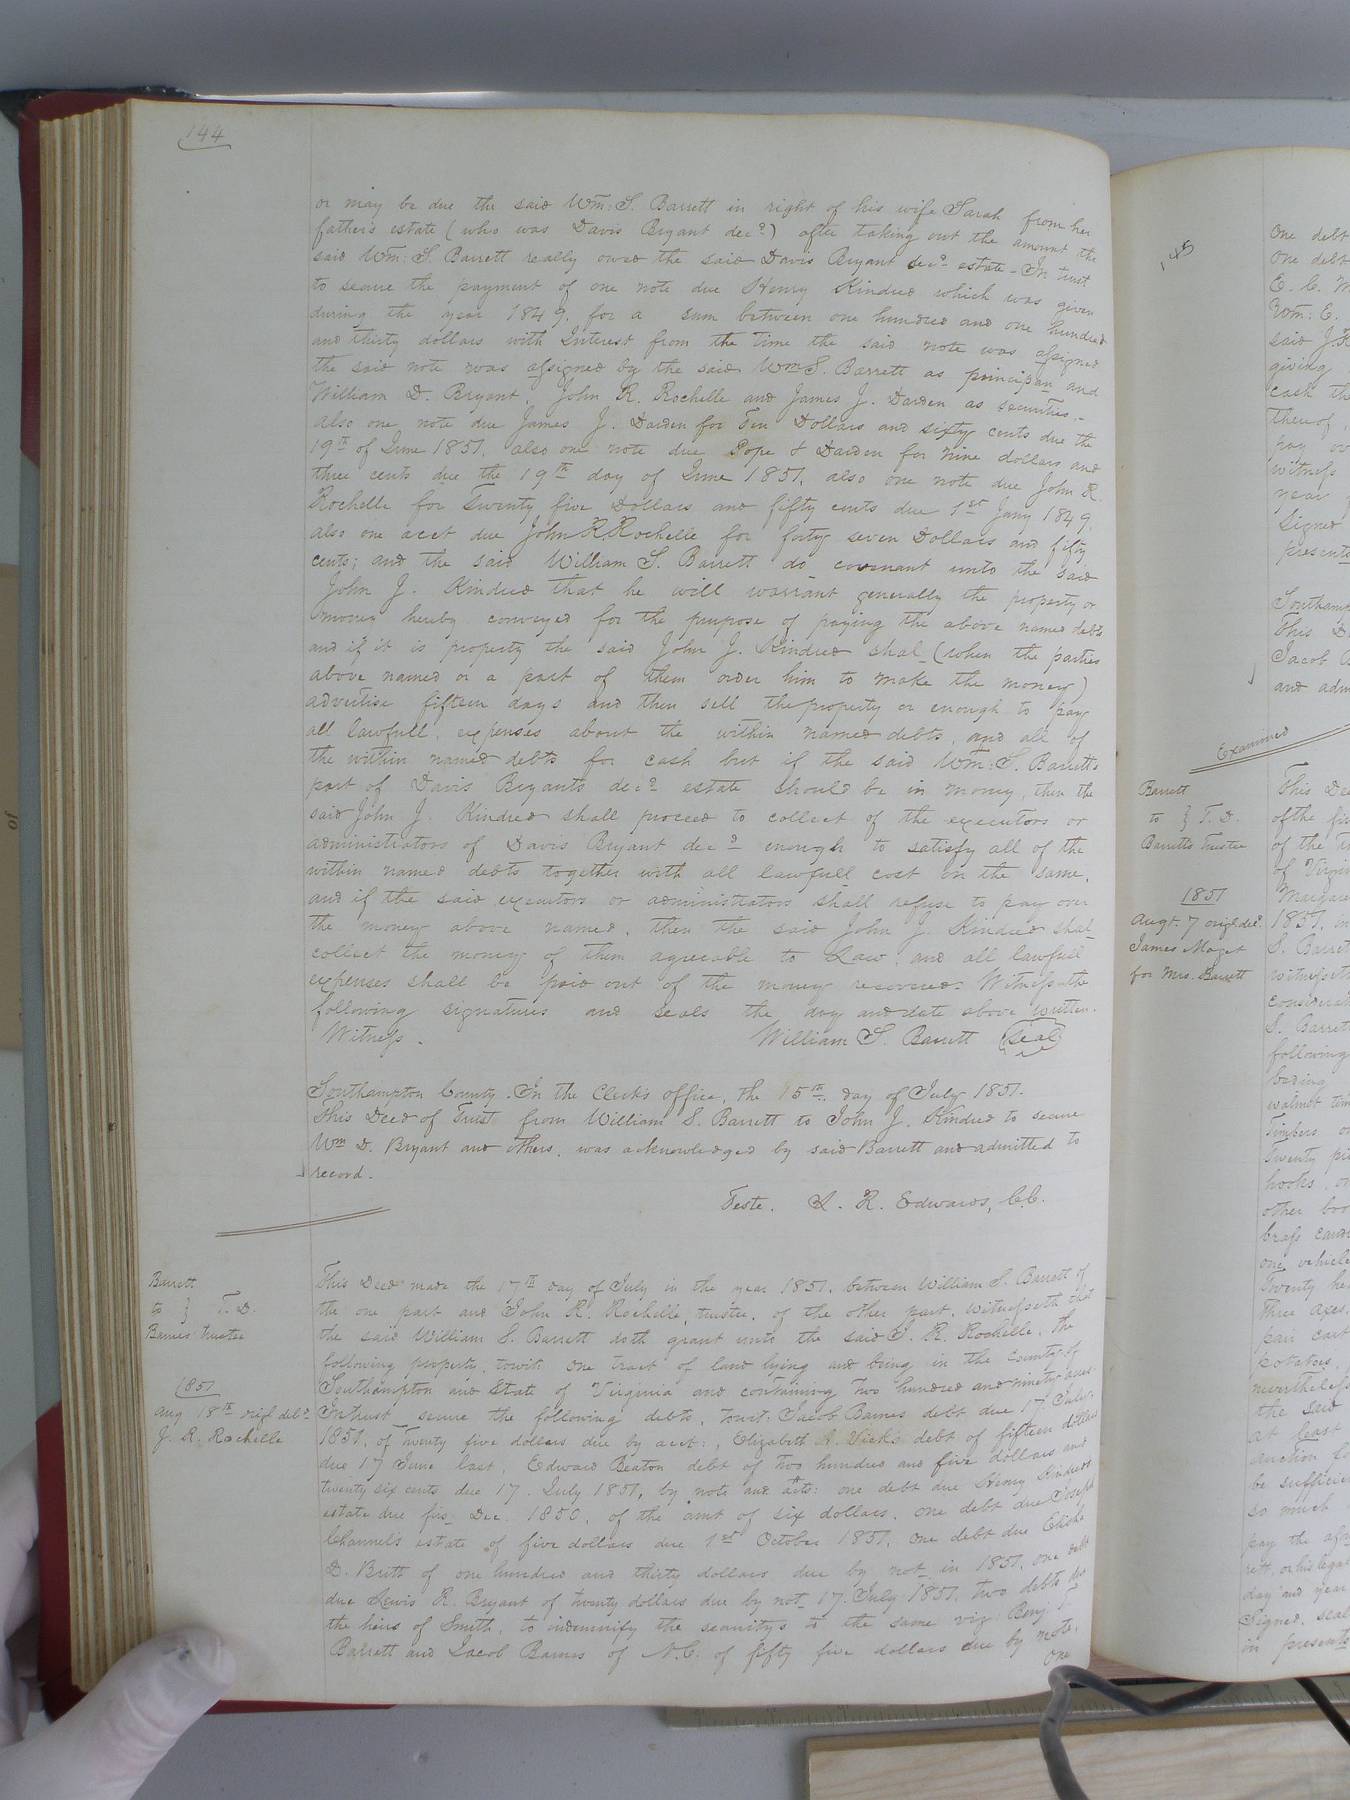 144
or may be due the said Wm: S. Barrett in right of his wife Sarah from her
father's estate (who was Davis Bryant decd) after taking out the amount the
said Wm: S. Barrett really owed the said Davis Bryant decd estate - In trust
to secure the payment of one note due Henry Kindred which was given
during the year 1849, for a sum between one hundred and one hundred
and thirty dollars with Interest from the time the said note was assigned
the said note was assigned by the said Wm S. Barrett as principan and
William D. Bryant, John R. Rochelle and James J. Darden as securities -
also one note due James J. Darden for Ten Dollars and sixty cents due the
19th of June 1851, also one note due Pope & Darden for nine dollars and
three cents due the 19th day of June 1851, also one note due John R.
Rochelle for Twenty five Dollars and fifty cents due 1st Jany 1849,
also one acct due John R. Rochelle for forty seven Dollars and fifty
cents; and the said William S. Barrett do covenant unto the said
John J. Kindred that he will warrant generally the property or
money hereby conveyed for the purpose of paying the above named debts
and if it is property the said John J. Kindred shal (when the parties
above named or a part of them order him to make the money)
advertise fifteen days and then sell the property or enough to pay
all lawfull expenses about the within named debts, and all of
the within named debts for cash but if the said Wm: S. Barretts
part of Davis Bryants decd estate should be in money, then the
said John J. Kindred shall proceed to collect of the executors or
administrators of Davis Bryant decd enough to satisfy all of the
within named debts together with all lawfull cost on the same,
and if the said executors or administrators shall refuse to pay over
the money above named, then the said John J. Kindred shal
collect the money of them agreeable to Law, and all lawfull
expenses shall be paid out of the money recovered. Witness the
following signatures and seals the day and date above written.
Witness. William S. Barrett (Seal)
Southampton County. In the Clerk's office, the 15th day of July 1851.
This Deed of Trust from William S. Barrett to John J. Kindred to secure
Wm D. Bryant and others, was acknowledged by said Barrett and admitted to
record.
Teste. L. R. Edwards, C.C.
Barrett
to } T. D.
Barnes trustee
1851
Aug 18th origl deld
J. R. Rochelle
This Deed made the 17th day of July in the year 1851, between William S. Barrett of
the one part and John R. Rochelle, trustee, of the other part, witnesseth that
the said William S. Barrett doth grant unto the said J. R. Rochelle, the
following property, towit: one tract of land lying and being in the County of
Southampton and State of Virginia and containing two hundred and ninety acres
In trust secure the following debts, towit: Jacob Barnes debt due 17 July
1851, of twenty five dollars due by acct:, Elizabeth A. Vick's debt of fifteen dollars
due 17 June last, Edward Beaton debt of two hundred and five dollars and
twenty six cents due 17. July 1851, by note and acts: one debt due Henry Kindred
estate due firs Dec. 1850, of the amt of six dollars, one debt due Joseph
Channel's estate of five dollars due 1st October 1851, one debt due Elisha
D. Britt of one hundred and thirty dollars due by not in 1851, one debt
due Lewis R. Bryant of twenty dollars due by not 17. July 1851, two debts due
the heirs of Smith, to indemnify the securitys to the same viz: Benj
Barrett and Jacob Barnes of N.C. of fifty five dollars due by note,
one
145
One debt
one debt
E. C.
Wm: E.
said J. R
giving
cash the
thereof,
pay ov
witness
year
Signed
presents
Southamp
This D
Jacob
and adm
Examined
Barrett
to } T. D.
Barretts Trustee
1851
Augt 7 origl deld
James Maget
for Mrs. Barrett
This Dee
of the fi
of the
of Virgin
Margare
1851, in
S. Barret
witnesseth
considerat
S. Barrett
following
being
walnut tim
Timbers
Twenty
hooks, or
other
brass cand
one vehicle
Twenty he
three axes,
pair cart
potatoes,
nevertheless
the said
at least
auction fo
be sufficie
so much
pay the
rett, or his legal
day and year
Signed, seal
in presents